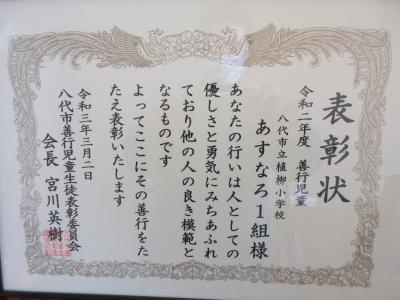 表彰状
令和二年度 善行児童
八代市立植柳小学校
あすなろ1組様
あなたの行いは人としての
優しさと勇気にみちあふれ
ており他の人の良き模範と
なるものです
よってここにその善行をた
たえ表彰いたします
令和三年三月二日
八代市善行児童生徒表彰委員会
会長 宮川英樹